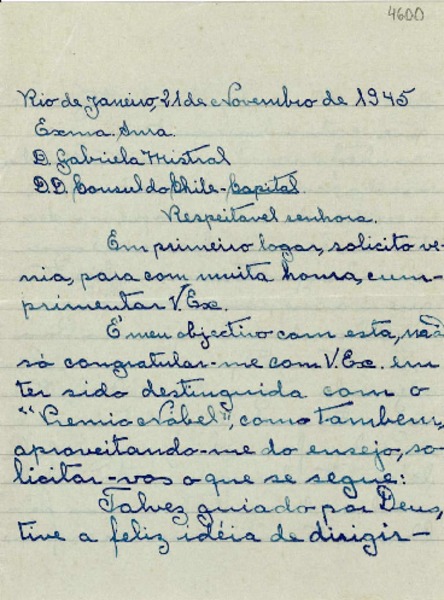 4600
Rio de Janeiro, 21 de Novembro de 1945
Exma. Snra.
D. Gabriela Mistral
D.D. Consul do Chile - Capital.
Respeitavel senhora.
Em primeiro logar, solicito ve-
nia, para com muita honra, cum-
primentar V. Ex.
É meu objectivo com esta, não
só congratular-me com V. Ex. em
ter sido destinguida com o
"Premio Nobel", como tambem,
aproveitando-me do ensejo, so-
licitar-vos o que se segue:
Talvez guiado por Deus,
tive a feliz idéia de dirigir-